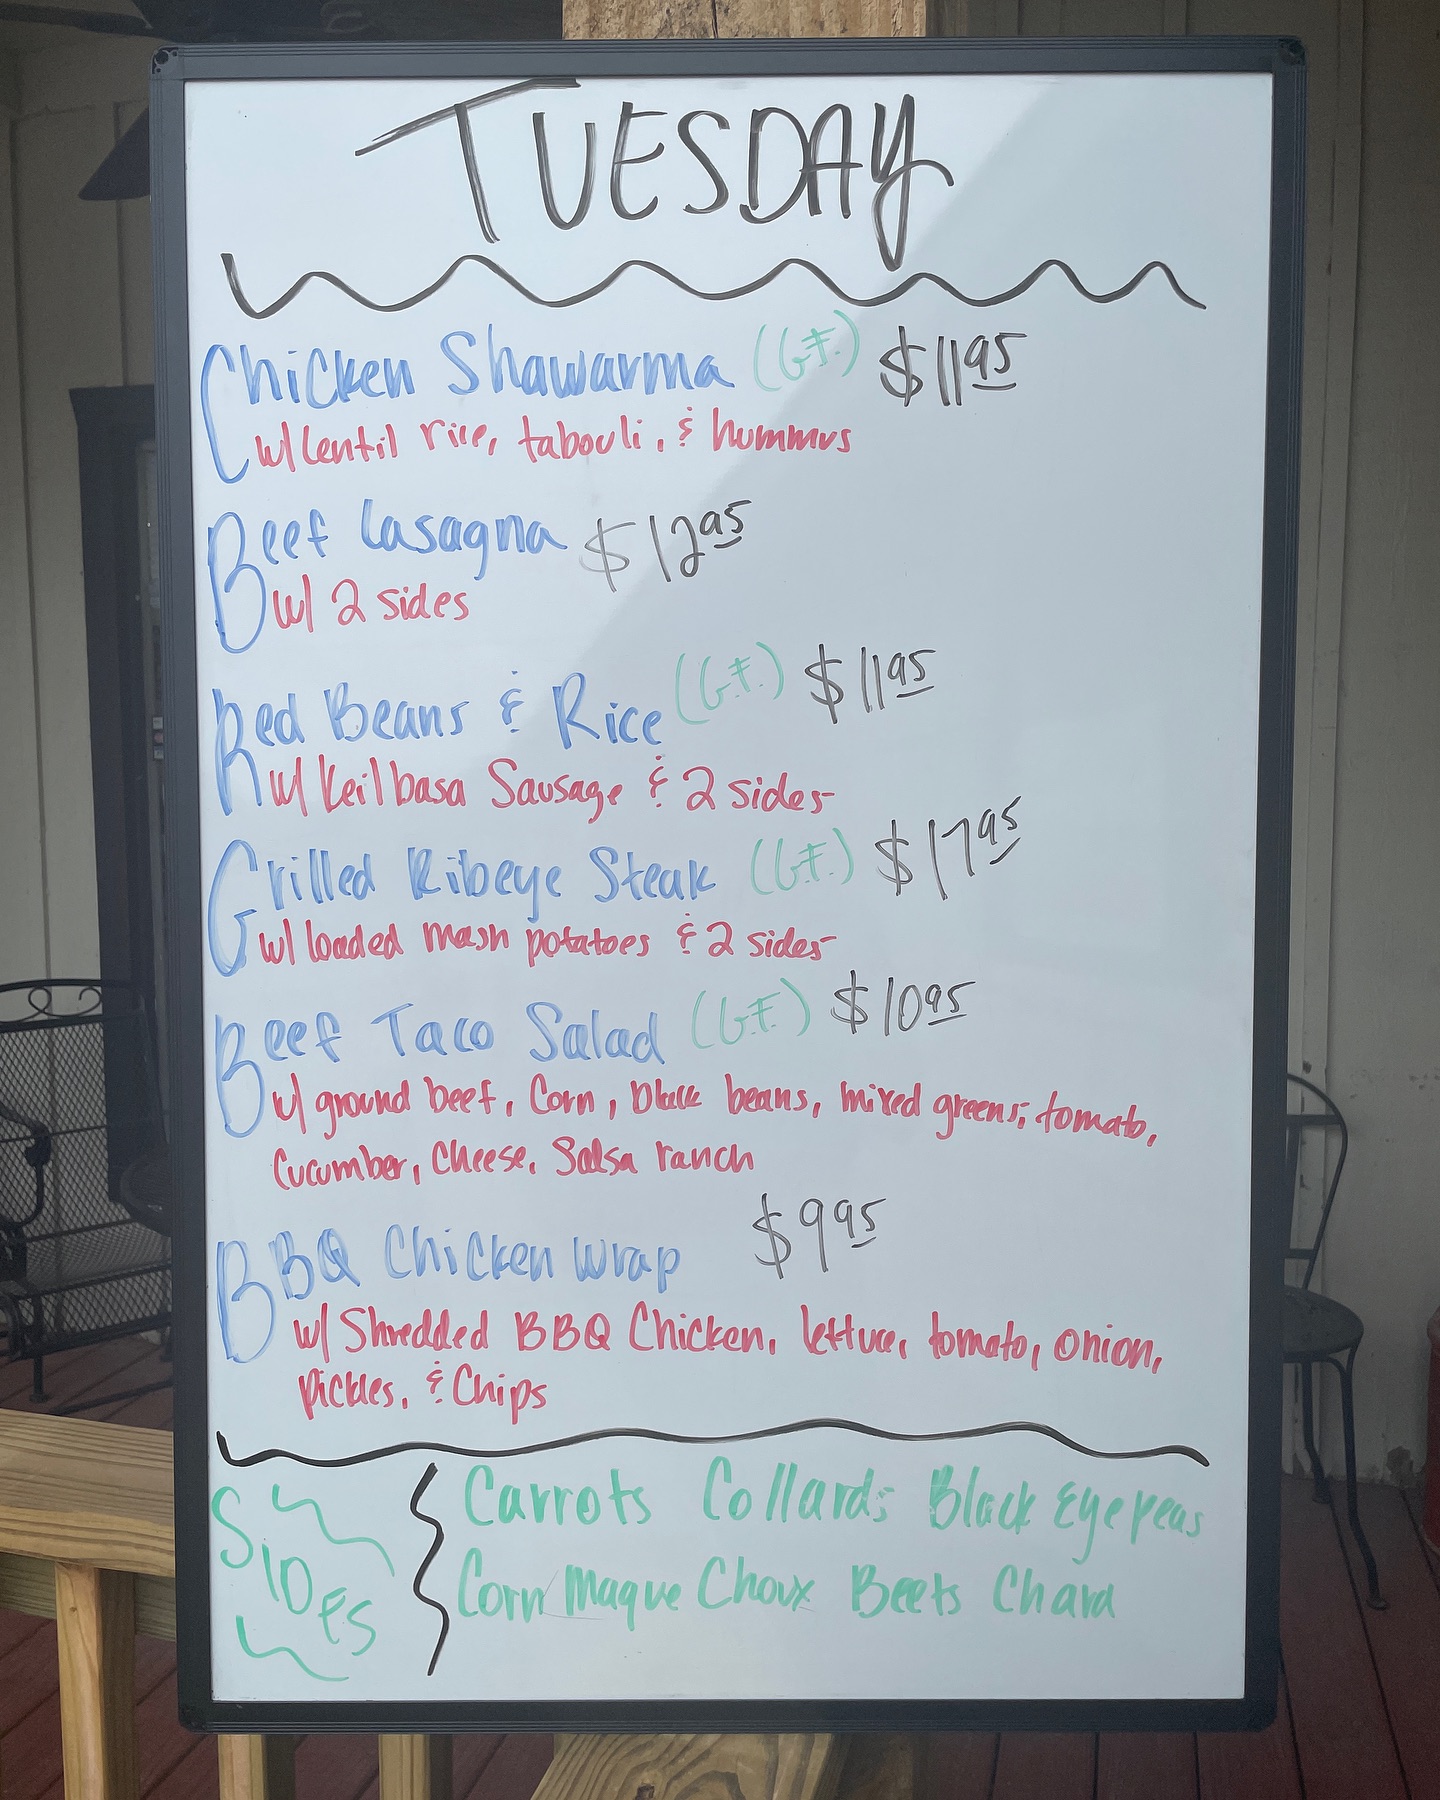 TUESDAY
Chicken Shawarma (G.F.) $11.95
w/ lentil rice, tabouli, & hummus
Beef Lasagna $12.95
w/ 2 sides
Red Beans & Rice (G.F.) $11.95
w/ Keilbasa Sausage & 2 sides
Grilled Ribeye Steak (G.F.) $17.95
w/ loaded mash potatoes & 2 sides
Beef Taco Salad (G.F.) $10.95
w/ ground beef, Corn, black beans, mixed greens, tomato,
Cucumber, Cheese, Salsa ranch
BBQ Chicken Wrap $9.95
w/ Shredded BBQ Chicken, lettuce, tomato, onion,
Pickles, & Chips
SIDES
Carrots Collards Black Eye peas
Corn Maque Choux Beets Chard